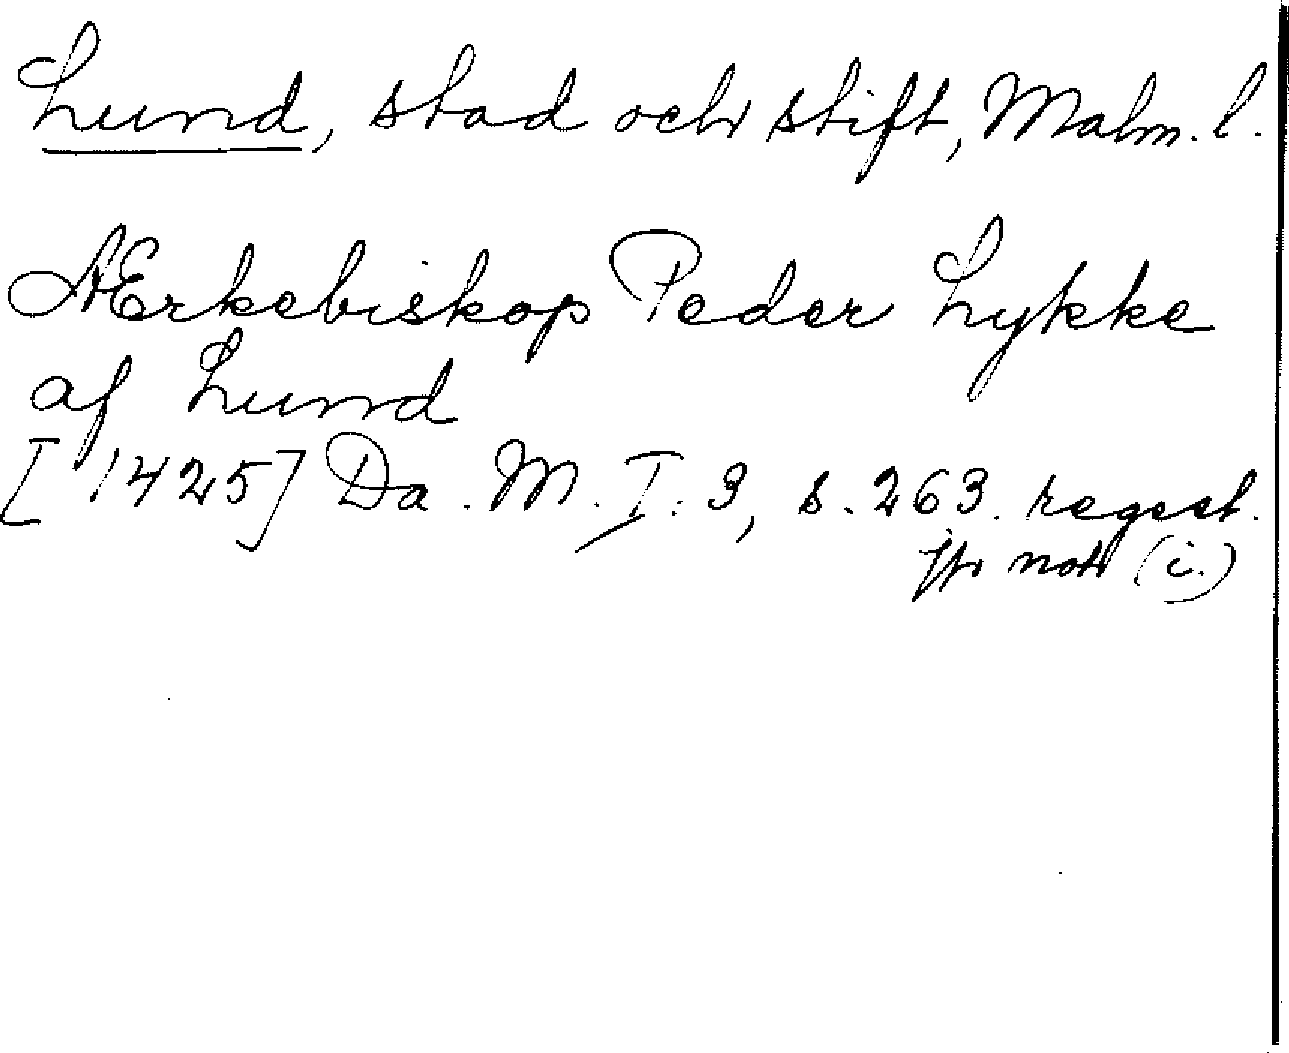 Lund, stad och stift, Malm. l.
Ærkebiskop Peder Lykke
af Lund
[1425] Da. M. I: 3, s. 263. regest.
jfr not (i.)